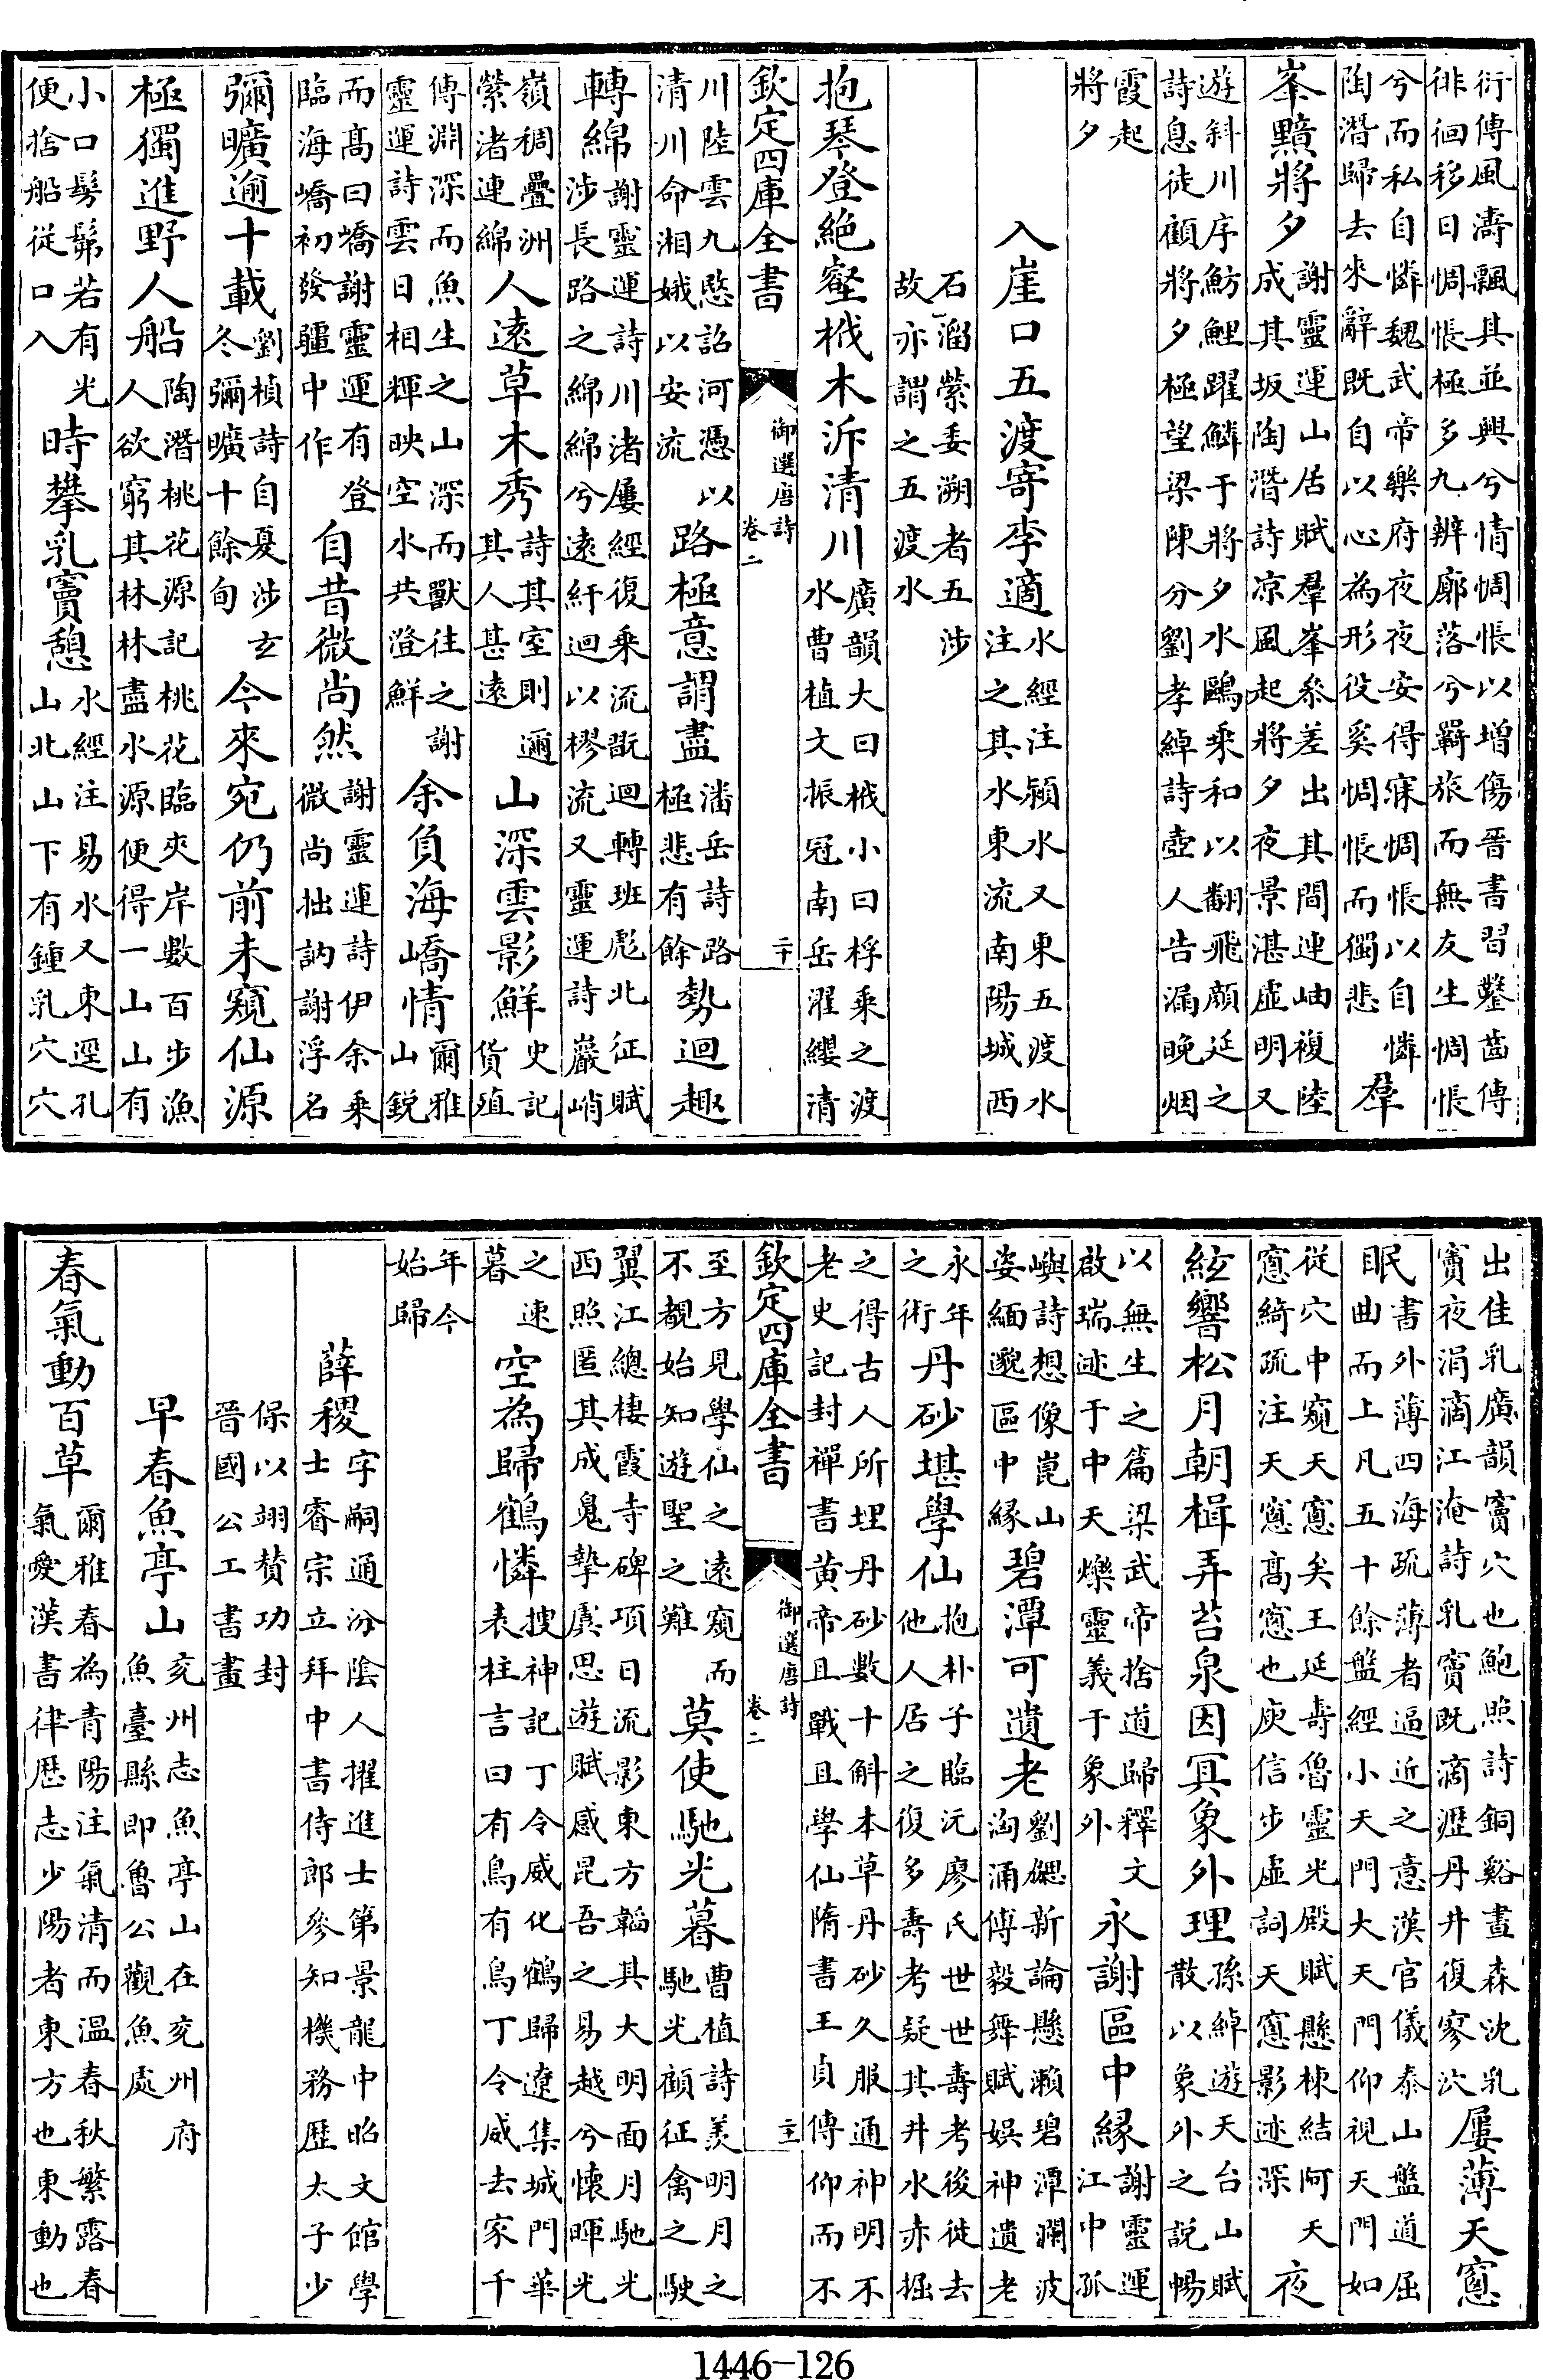 衍傳風濤飄其並興兮情惆悵以增傷晉書習鑿齒傳
徘徊移日惆悵極多九辨廓落兮羇旅而無友生惆悵
兮而私自憐魏武帝樂府夜夜安得寐惆悵以自憐
陶潛歸去來辭既自以心為形役奚惆悵而獨悲
羣
峯黯將夕
謝靈運山居賦羣峯叅差出其間連岫複陸
成其坂陶潛詩凉風起將夕夜景湛虛明又
遊斜川序魴鯉躍鱗于將夕水鷗乘和以翻飛顔延之
詩息徒顧將夕極望梁陳分劉孝綽詩壺人告漏晚烟
霞起
將夕
入崖口五渡寄李適
水經注潁水又東五渡水
注之其水東流南陽城西
石溜縈委溯者五涉
故亦謂之五渡水
抱琴登絶壑栰木泝清川
廣韻大曰栰小曰桴乘之渡
水曹植文振冠南岳濯纓清
欽定四庫全書
御選唐詩
卷二
二十
川陸雲九愍詔河憑以
清川命湘娥以安流
路極意謂盡
潘岳詩路
極悲有餘
勢迴趣
轉綿
謝靈運詩川渚屢經復乘流翫迴轉班彪北征賦
涉長路之綿綿兮遠紆迴以樛流又靈運詩巖峭
嶺稠疊洲
縈渚連綿
人遠草木秀
詩其室則邇
其人甚遠
山深雲影鮮
史記
貨殖
傳淵深而魚生之山深而獸往之謝
靈運詩雲日相輝映空水共澄鮮
余負海嶠情
爾雅
山銳
而髙曰嶠謝靈運有登
臨海嶠初發疆中作
自昔微尚然
謝靈運詩伊余乘
微尚拙訥謝浮名
彌曠逾十載
劉楨詩自夏涉玄
冬彌曠十餘旬
今來宛仍前未窺仙源
極獨進野人船
陶潛桃花源記桃花臨夾岸數百步漁
人欲窮其林林盡水源便得一山山有
小口髣髴若有光
便捨船從口入
時攀乳竇憩
水經注易水又東逕孔
山北山下有鍾乳穴穴
出佳乳廣韻竇穴也鮑照詩銅谿晝森沈乳
竇夜涓滴江淹詩乳竇既滴瀝丹井復寥泬
屢薄天窻
眠
書外薄四海疏薄者逼近之意漢官儀泰山盤道屈
曲而上凡五十餘盤經小天門大天門仰視天門如
從穴中窺天窻矣王延壽魯靈光殿賦懸棟結阿天
窻綺疏注天窻髙窻也庾信步虛詞天窻影迹深
夜
絃響松月朝楫弄苔泉因冥象外理
孫綽遊天台山賦
散以象外之說暢
以無生之篇梁武帝捨道歸釋文
啟瑞迹于中天爍靈義于象外
永謝區中緣
謝靈運
江中孤
嶼詩想像崑山
姿緬邈區中緣
碧潭可遺老
劉勰新論懸瀨碧潭瀾波
洶涌傅毅舞賦娛神遺老
永年
之術
丹砂堪學仙
抱朴子臨沅廖氏世世壽考後徙去
他人居之復多壽考疑其井水赤掘
之得古人所埋丹砂數十斛本草丹砂久服通神明不
老史記封禪書黃帝且戰且學仙隋書王貞傳仰而不
欽定四庫全書
御選唐詩
卷二
二十一
至方見學仙之遠窺而
不覩始知遊聖之難
莫使馳光暮
曹植詩羨明月之
馳光顧征禽之駛
翼江總棲霞寺碑項日流影東方韜其大明面月馳光
西照匿其成鬼摯虞思遊賦感昆吾之易越兮懷暉光
之速
暮
空為歸鶴憐
搜神記丁令威化鶴歸遼集城門華
表柱言曰有鳥有鳥丁令威去家千
年今
始歸
薛稷
字嗣通汾陰人擢進士第景龍中昭文館學
士睿宗立拜中書侍郎參知機務歷太子少
保以翊贊功封
晉國公工書畫
早春魚亭山
兖州志魚亭山在兖州府
魚臺縣即魯公觀魚處
春氣動百草
爾雅春為青陽注氣清而温春秋繁露春
氣愛漢書律歷志少陽者東方也東動也
1446-126